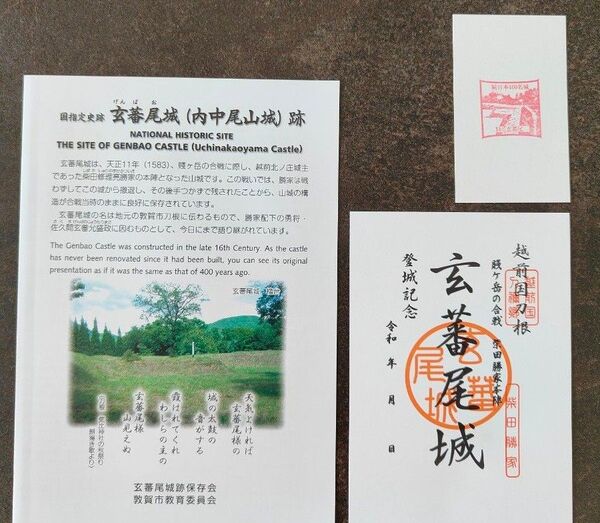 げんばお
国指定史跡 玄蕃尾城(内中尾山城)跡
NATIONAL HISTORIC SITE
THE SITE OF GENBAO CASTLE (Uchinakaoyama Castle)
玄蕃尾城は、天正11年(1583)、賤ヶ岳の合戦に際し、越前北ノ庄城主
であった柴田修理亮勝家の本陣となった山城です。この戦いでは、勝家は戦
わずしてこの城から撤退し、その後手つかずで残されたことから、山城の構
造が合戦当時のままに良好に保存されています。
玄蕃尾城の名は地元の敦賀市刀根に伝わるもので、勝家配下の勇将・
佐久間玄蕃允盛政に因むものとして、今日にまで語り継がれています。
The Genbao Castle was constructed in the late 16th Century. As the castle
has never been renovated since it had been built, you can see its original
presentation as if it was the same as that of 400 years ago.
天気よければ
玄蕃尾様の
城の太鼓の
音がする
霞はれてくれ
わしらの主の
玄蕃尾様
山見えぬ
玄蕃尾城跡保存会
敦賀市教育委員会
続日本100名城
越前国刀根
賤ヶ岳の合戦 柴田勝家本陣
玄蕃尾城
登城記念
令和 年 月 日
玄蕃尾城
柴田勝家